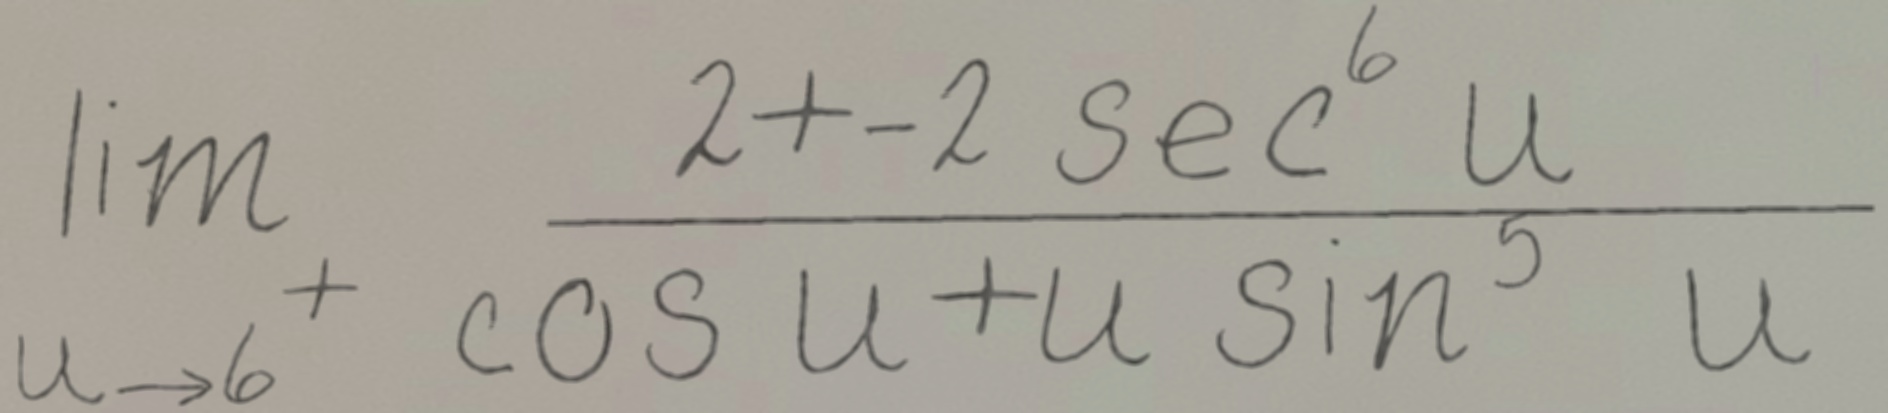 \lim_{u \to 6^+} \frac{2+-2 \sec^6 u}{\cos u+u \sin^5 u}